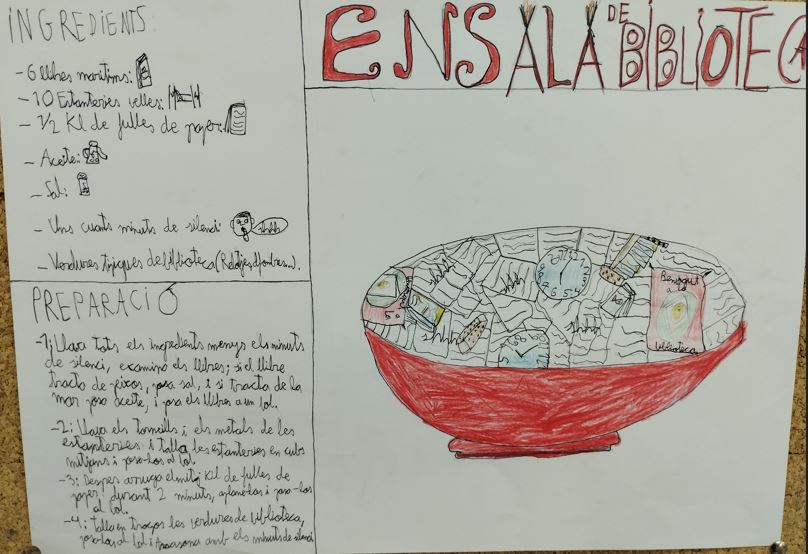 INGREDIENTS:
-6 llibres marítims:
-10 Estanteries velles:
-1/2 Kl de fulles de paper:
-Aceite:
-Sal:
-Uns cuants minuts de silenci shhh
-Verdures típiques de biblioteca (Rellotjes,
PREPARACIÓ
-1: Llava tots els ingredients menys els minuts
de silenci, examina els llibres; si el llibre
tracta de peixos, posa sal, i si tracta de la
mar posa aceite, i posa els llibres a un bol.
-2: Lleva els tornills i els metals de les
estanteries i talla les estanteries en cubs
mitjans i posa-los al bol.
-3: Despres arruga el mitg Kil de fulles de
paper, durant 2 minuts, aplana-las i posa-los
al bol.
-4: Talla en troços les verdures de biblioteca,
posa-las al bol i apaasona amb els minuts de silenci
ENSALÀ DE BIBLIOTECA
shhh
shhh
shhh
Benvigut
a la
biblioteca